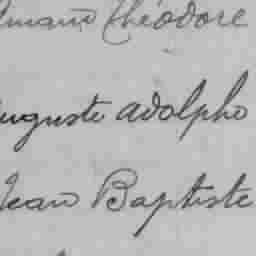 Théodore
Auguste Adolphe
Jean Baptiste